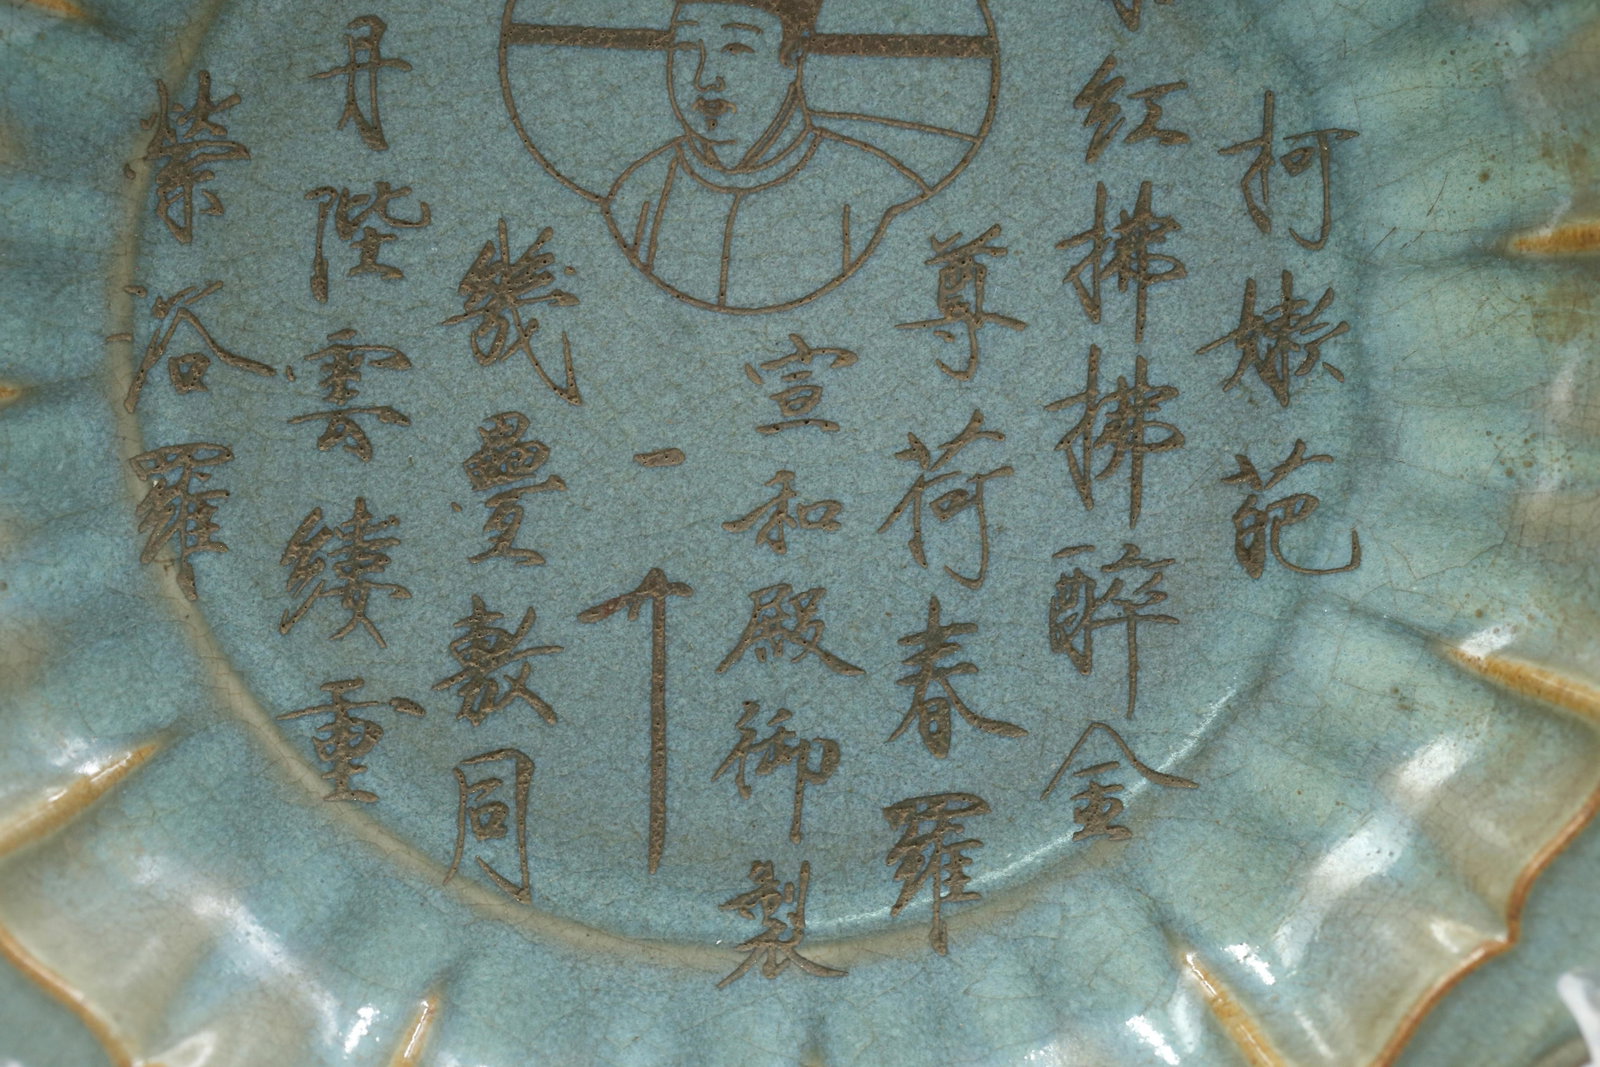 柯嫩葩
紅拂拂醉金
尊荷春羅
宣和殿御製
幾疊敷同
丹陛雲縷重
縈浴羅